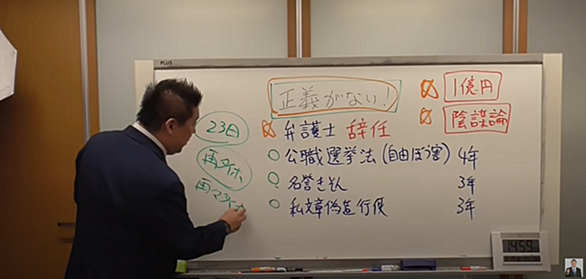 PLUS
正義がない!
1億円
陰謀論
23日
再タイホ
弁護士 辞任
公職選挙法(自由ぼう害) 4年
名誉きそん 3年
私文章偽造行使 3年